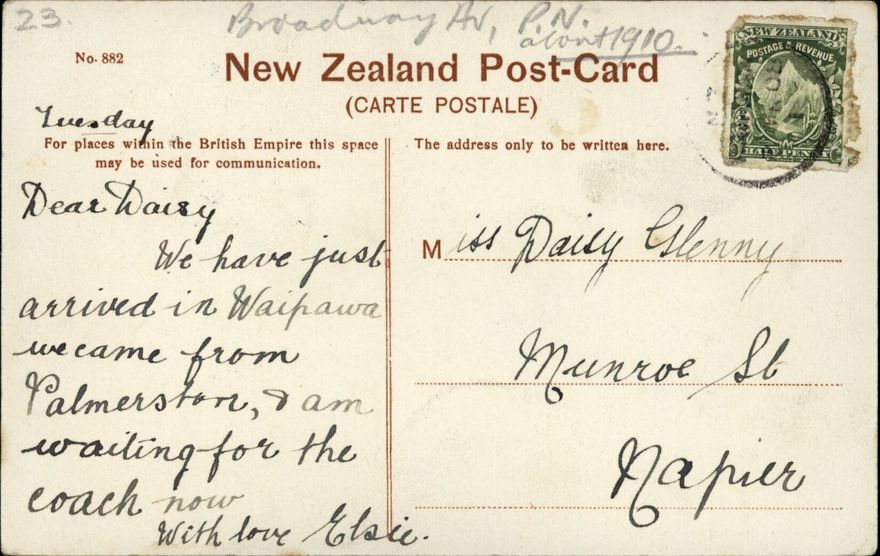 23.
Broadway Av, P.N.
about 1910.
No. 882
New Zealand Post-Card
(CARTE POSTALE)
NEW ZEALAND
POSTAGE & REVENUE
HALF PENNY
Tuesday
For places within the British Empire this space
may be used for communication.
Dear Daisy
We have just
arrived in Waipawa
we came from
Palmerston, & am
waiting for the
coach now
With love Elsie.
The address only to be written here.
Miss Daisy Glenny
Munroe St
Napier